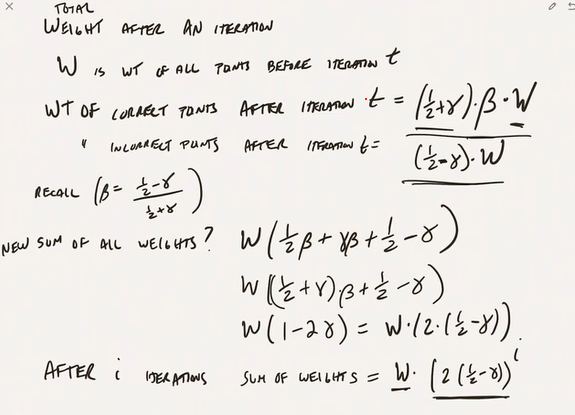 TOTAL
WEIGHT AFTER AN ITERATION
W IS WT OF ALL POINTS BEFORE ITERATION t
WT OF CORRECT POINTS AFTER ITERATION t = (½+γ)·β·W
" INCORRECT POINTS AFTER ITERATION t = (½-γ)·W
RECALL (β = (½-γ)/(½+γ))
NEW SUM OF ALL WEIGHTS? W(½β + γβ + ½ - γ)
W((½+γ)β + ½ - γ)
W(1-2γ) = W·(2·(½-γ))
AFTER i ITERATIONS SUM OF WEIGHTS = W·(2(½-γ))^i